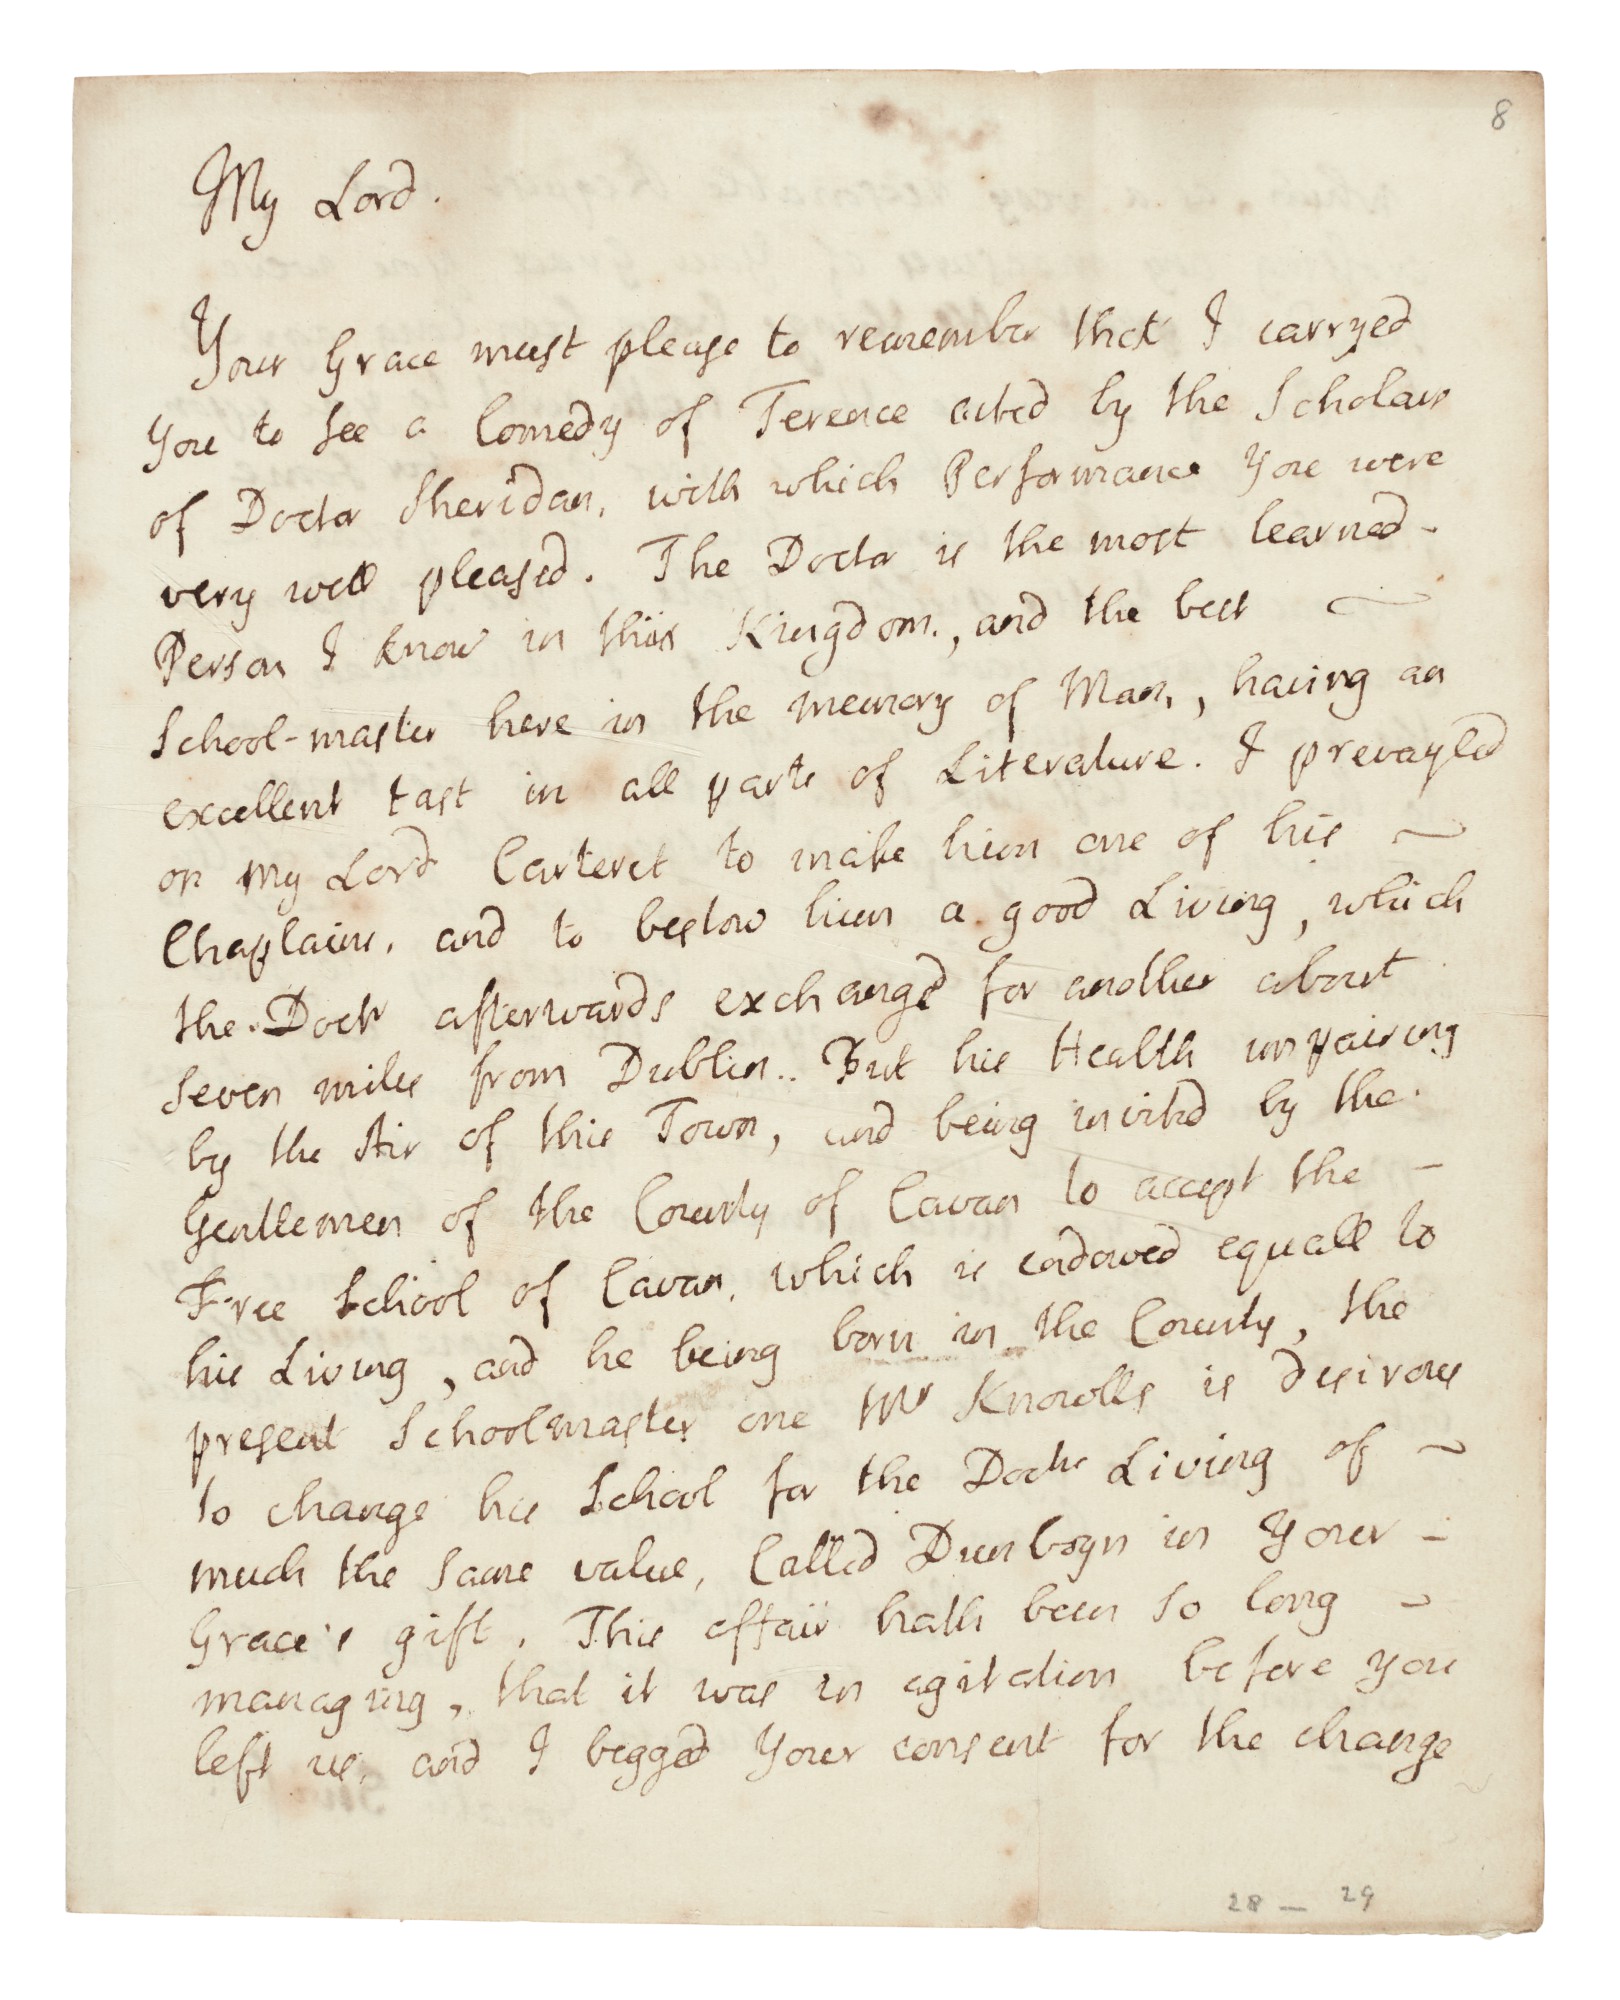 8
My Lord.
Your Grace must please to remember that I carryed
you to see a Comedy of Terence acted by the Scholars
of Doctor Sheridan, with which Performance you were
very well pleased. The Doctor is the most learned
Person I know in this Kingdom, and the best
School-master here in the memory of Man, having an
excellent tast in all parts of Literature. I prevayled
on my Lord Carteret to make him one of his
Chaplains, and to bestow him a good Living, which
the Doctr afterwards exchanged for another about
seven miles from Dublin. But his Health impairing
by the Air of this Town, and being invited by the
Gentlemen of the County of Cavan to accept the
Free School of Cavan, which is endowed equall to
his Living, and he being born in the County, the
present Schoolmaster one Mr Knowlls is desirous
to change his School for the Doctrs Living of
much the same value, Called Dunboyn in Your
Grace's gift. This affair hath been so long
managing, that it was in agitation before you
left us, and I begged Your consent for the change
28 — 29